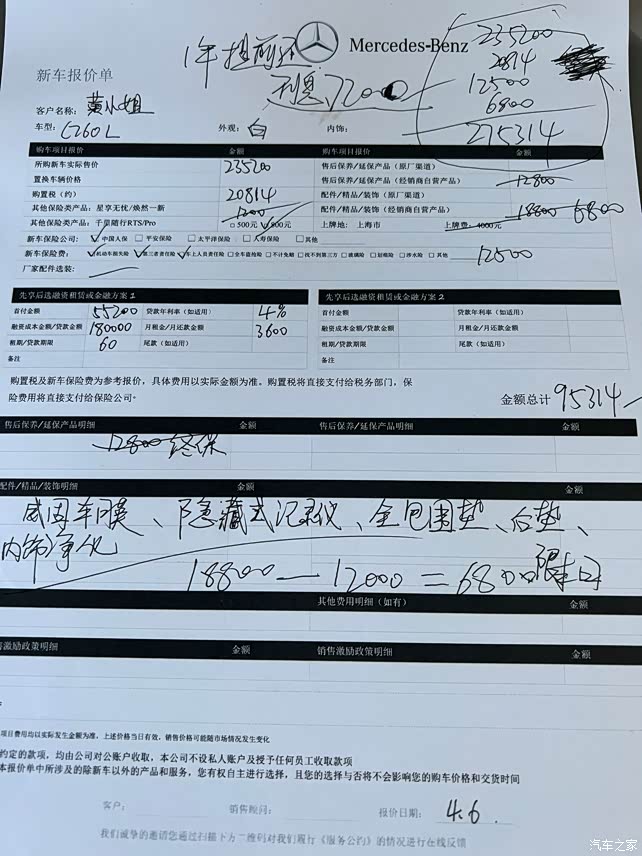 1年提前还
利息7200
Mercedes-Benz
235200
20814
12500
6800
275314
新车报价单
客户名称：黄小姐
车型：C260L 外观：白 内饰：
购车项目报价 金额 购车项目报价 金额
所购新车实际售价 235200 售后保养/延保产品（原厂渠道）
置换车辆价格 售后保养/延保产品（经销商自营产品） 12800
购置税（约） 20814 配件/精品/装饰（原厂渠道）
其他保险类产品：星享无忧/焕然一新 1200 配件/精品/装饰（经销商自营产品） 18800 6800
其他保险类产品：千星随行RTS/Pro □500元 900元 上牌地：上海市 上牌费：4000元
新车保险公司：☑中国人保 □平安保险 □太平洋保险 □人寿保险 □其他
新车保险费：☑机动车损失险 ☑第三者责任险 ☑车上人员责任险 □全车盗抢险 □不计免赔 □找不到第三方 □玻璃险 □划痕险 □涉水险 □其他 12500
厂家配件选装：
先享后选融资租赁或金融方案1 先享后选融资租赁或金融方案2
首付金额 55200 贷款年利率（如适用） 4% 首付金额 贷款年利率（如适用）
融资成本金额/贷款金额 180000 月租金/月还款金额 3600 融资成本金额/贷款金额 月租金/月还款金额
租期/贷款期限 60 尾款（如适用） 租期/贷款期限 尾款（如适用）
备注 备注
购置税及新车保险费为参考报价，具体费用以实际金额为准。购置税将直接支付给税务部门，保
险费用将直接支付给保险公司。
金额总计 95314
售后保养/延保产品明细 金额 售后保养/延保产品明细 金额
12800 终保
配件/精品/装饰明细 金额 金额
威固车膜、隐藏式记录仪、全包围垫、后垫、
内饰净化
18800－12000＝6800 限本日
其他费用明细（如有） 金额
售激励政策明细 金额 销售激励政策明细 金额
项目费用均以实际发生金额为准，上述价格当日有效，销售价格可能随市场情况发生变化
约定的款项，均由公司对公账户收取，本公司不设私人账户及授予任何员工收取款项
本报价单中所涉及的除新车以外的产品和服务，您有权自主进行选择，且您的选择与否将不会影响您的购车价格和交货时间
客户： 销售顾问： 报价日期： 4.6.
我们诚挚的邀请您通过扫描下方二维码对我们履行《服务公约》的情况进行在线反馈
汽车之家